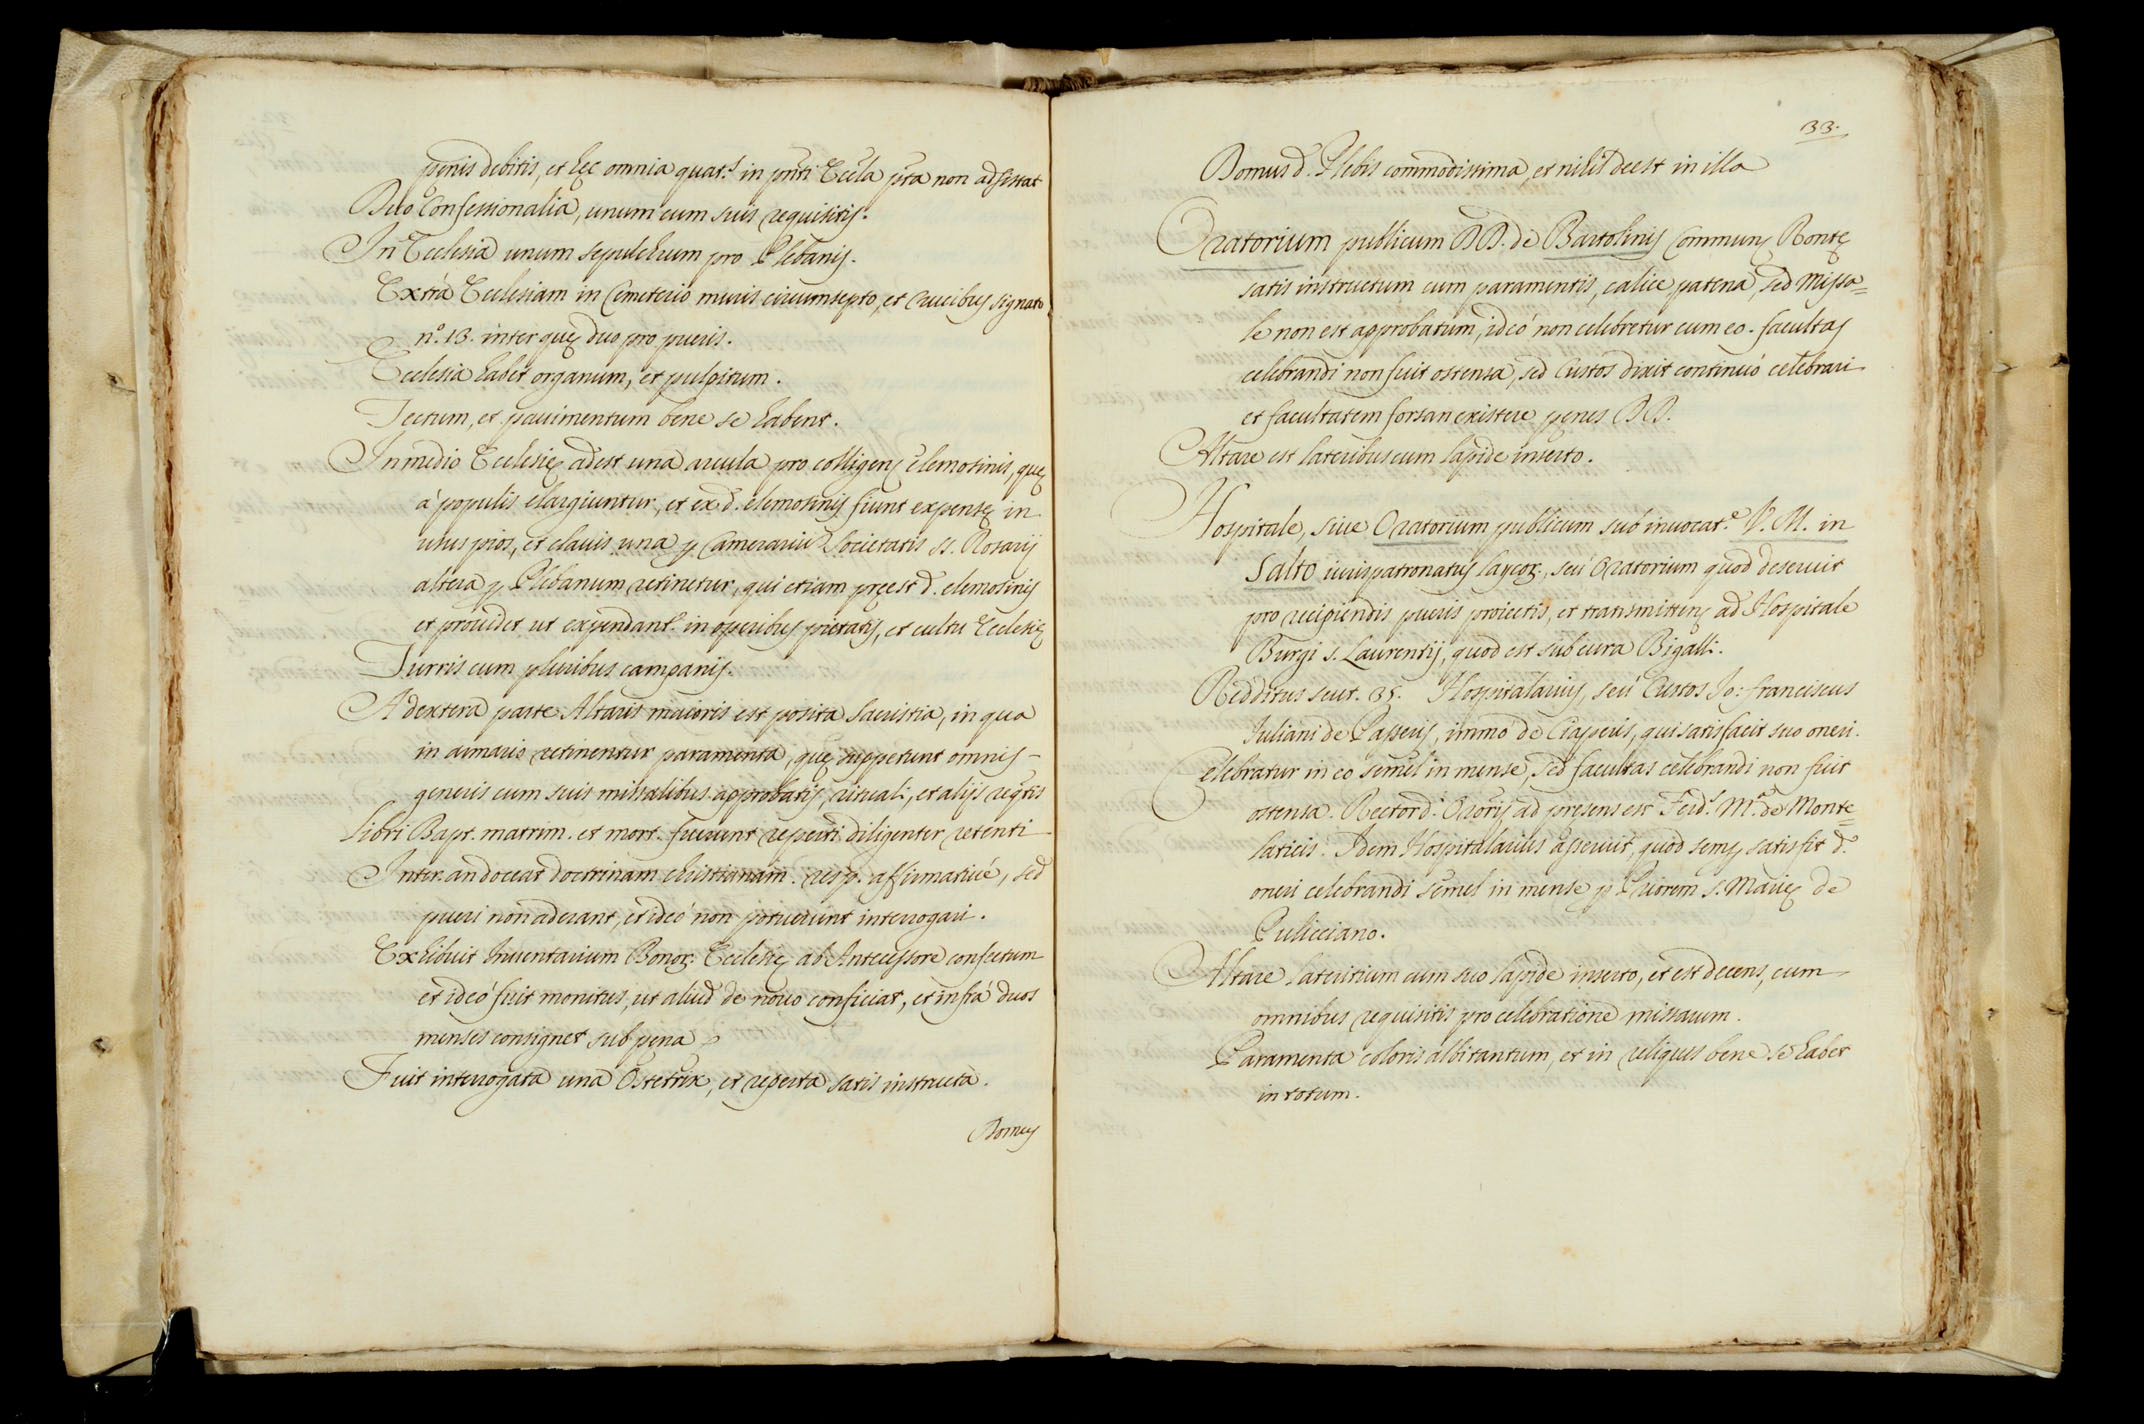 penis debitis, et hęc omnia quat.s in pñti Eccla pia non adsistat
Duo Confessionalia, unum cum suis requisitis.
In Ecclesia unum sepulchrum pro Plebanis.
Extrà Ecclesiam in Cemeterio muris circumsepto, et crucibus signato
n.o 13. inter quę duo pro pueris.
Ecclesia habet organum, et pulpitum.
Tectum, et pavimentum bene se habent.
In medio Ecclesię adest una arcula pro colligens elemosinis, quę
à populis elargiuntur, et ex d. elemosinis fiunt expensę in
usus pios, et clavis una p Camerariũ Societatis SS. Rosarij
altera p Plebanum retinetur, qui etiam pręest d. elemosinis
et providet ut expendant.r in operibus pietatis, et cultu Ecclesię
Turris cum pluribus campanis.
A dextera parte Altaris maioris est posita Sacristia, in qua
in armario retinentur paramenta, quę suppetunt omnis
generis cum suis missalibus approbatis, rituali, et alijs reqtis
Libri Bapt. matrim. et mort. fuerunt reperti diligenter retenti
Inter. an doceat doctrinam christianam. resp. affirmativé, sed
pueri non aderant, et ideó non potuerunt interrogari.
Exhibuit Inventarium Bonor. Ecclesię ab Antecessore confectum
et ideó fuit monitus, ut aliud de novo conficiat, et infrá duos
menses consignet sub pena
Fuit interrogata una Ostetrix, et reperta satis instructa.
Domus
33.
Domus d. Plebis commodissima, et nihil deest in illa
Oratorium publicum DD. de Bartolinis Communis Rontę
satis instructum cum paramentis, calice patena, sed Missa=
le non est approbatum, ideó non celebretur cum eo. facultas
celebrandi non fuit ostensa, sed Custos dixit continuó celebrari
et facultatem forsan existere penes DD.
Altare est lateribus cum lapide inserto.
Hospitale, sive Oratorium publicum sub invocat.e V. M. in
Salto iurispatronatus laycor., seu Oratorium quod deservit
pro recipiendis pueris proiectis, et transmittens ad Hospitale
Burgi S. Laurentij, quod est sub cura Bigalli.
Redditus scut. 35. Hospitalarius, seu Custos Jo: franciscus
Iuliani de Passeris, immo de Ciasperis, qui satisfacit suo oneri.
Celebratur in eo semel in mense, sed facultas celebrandi non fuit
ostensa. Rector d. Orõrij ad presens est Ferd. M.a de Monte=
laticis. Idem Hospitalarius asseruit, quod semp satisfit d.
oneri celebrandi semel in mense p Priorem S. Marię de
Pulicciano.
Altare lateritium cum suo lapide inserto, et est decens, cum
omnibus requisitis pro celebratione missarum.
Paramenta coloris albi tantum, et in reliquis bene se habet
in totum.